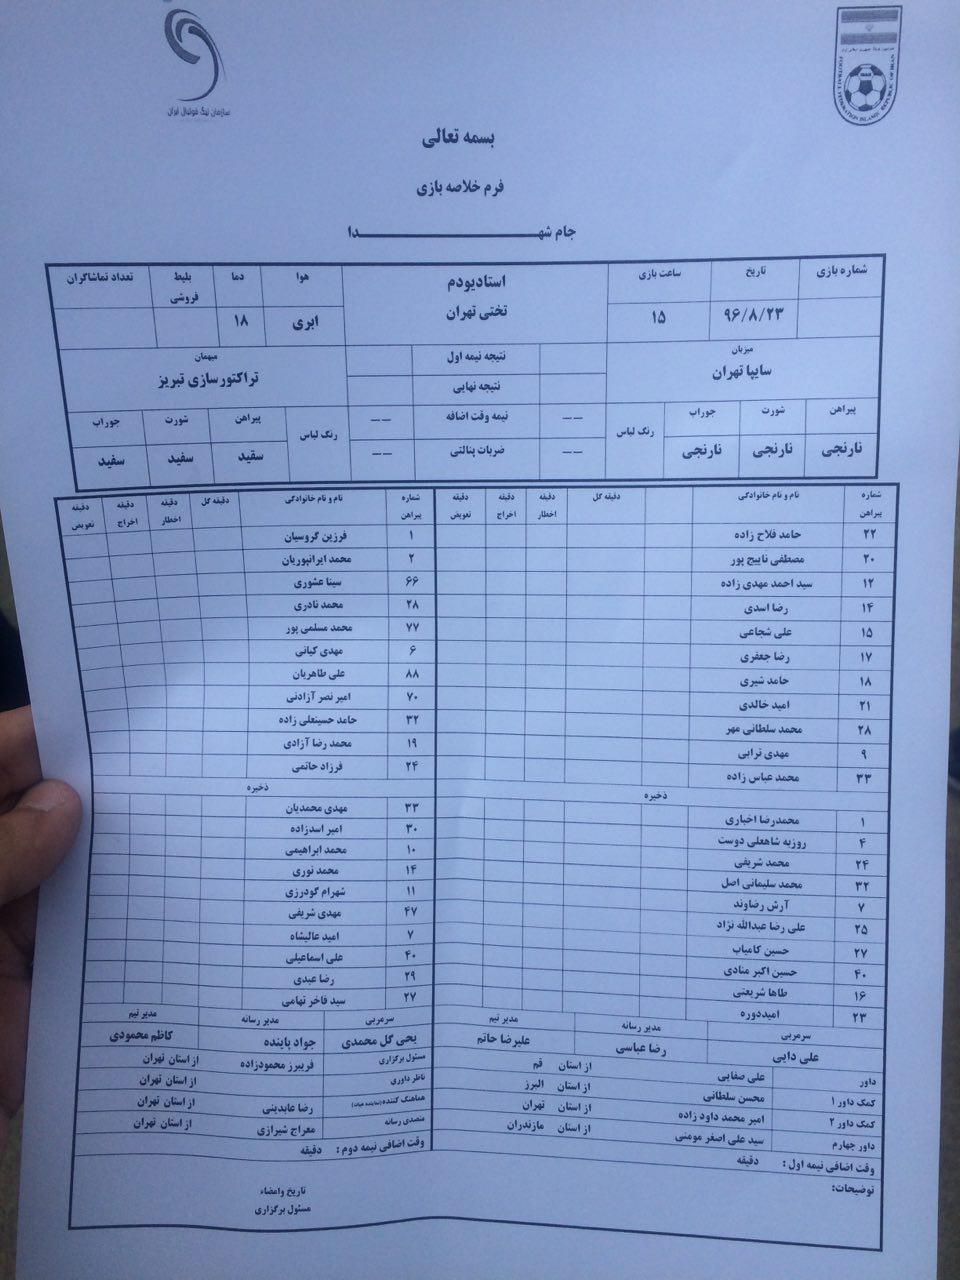 سازمان لیگ فوتبال ایران
FOOTBALL FEDERATION ISLAMIC REPUBLIC OF IRAN
بسمه تعالی
فرم خلاصه بازی
جام شهدا
شماره بازی تاریخ ساعت بازی استادیودم هوا دما بلیط فروشی تعداد تماشاگران
۹۶/۸/۲۳ ۱۵ تختی تهران ابری ۱۸
میزبان نتیجه نیمه اول میهمان
سایپا تهران نتیجه نهایی تراکتورسازی تبریز
پیراهن شورت جوراب رنگ لباس -- نیمه وقت اضافه -- رنگ لباس پیراهن شورت جوراب
نارنجی نارنجی نارنجی -- ضربات پنالتی -- سفید سفید سفید
شماره پیراهن نام و نام خانوادگی دقیقه گل دقیقه اخطار دقیقه اخراج دقیقه تعویض
۲۲ حامد فلاح زاده
۲۰ مصطفی ناییج پور
۱۲ سید احمد مهدی زاده
۱۴ رضا اسدی
۱۵ علی شجاعی
۱۷ رضا جعفری
۱۸ حامد شیری
۲۱ امید خالدی
۲۸ محمد سلطانی مهر
۹ مهدی ترابی
۳۳ محمد عباس زاده
ذخیره
۱ محمدرضا اخباری
۴ روزبه شاهعلی دوست
۲۴ محمد شریفی
۳۲ محمد سلیمانی اصل
۷ آرش رضاوند
۲۵ علی رضا عبدالله نژاد
۲۷ حسین کامیاب
۴۰ حسین اکبر منادی
۱۶ طاها شریعتی
۲۳ امیددوره
سرمربی مدیر رسانه مدیر تیم
علی دایی رضا عباسی علیرضا حاتم
داور علی صفایی از استان قم
کمک داور ۱ محسن سلطانی از استان البرز
کمک داور ۲ امیر محمد داود زاده از استان تهران
داور چهارم سید علی اصغر مومنی از استان مازندران
وقت اضافی نیمه اول : دقیقه
شماره پیراهن نام و نام خانوادگی دقیقه گل دقیقه اخطار دقیقه اخراج دقیقه تعویض
۱ فرزین گروسیان
۲ محمد ایرانپوریان
۶۶ سینا عشوری
۲۸ محمد نادری
۷۷ محمد مسلمی پور
۶ مهدی کیانی
۸۸ علی طاهریان
۷۰ امیر نصر آزادنی
۳۲ حامد حسینعلی زاده
۱۹ محمد رضا آزادی
۲۴ فرزاد حاتمی
ذخیره
۳۳ مهدی محمدیان
۳۰ امیر اسدزاده
۱۰ محمد ابراهیمی
۱۴ محمد نوری
۱۱ شهرام گودرزی
۴۷ مهدی شریفی
۷ امید عالیشاه
۴۰ علی اسماعیلی
۲۹ رضا عبدی
۲۷ سید فاخر تهامی
سرمربی مدیر رسانه مدیر تیم
یحی گل محمدی جواد پاینده کاظم محمودی
مسئول برگزاری فریبرز محمودزاده از استان تهران
ناظر داوری از استان تهران
هماهنگ کننده(نماینده هیات) رضا عابدینی از استان تهران
متصدی رسانه معراج شیرازی از استان تهران
وقت اضافی نیمه دوم : دقیقه
توضیحات:
تاریخ وامضاء
مسئول برگزاری